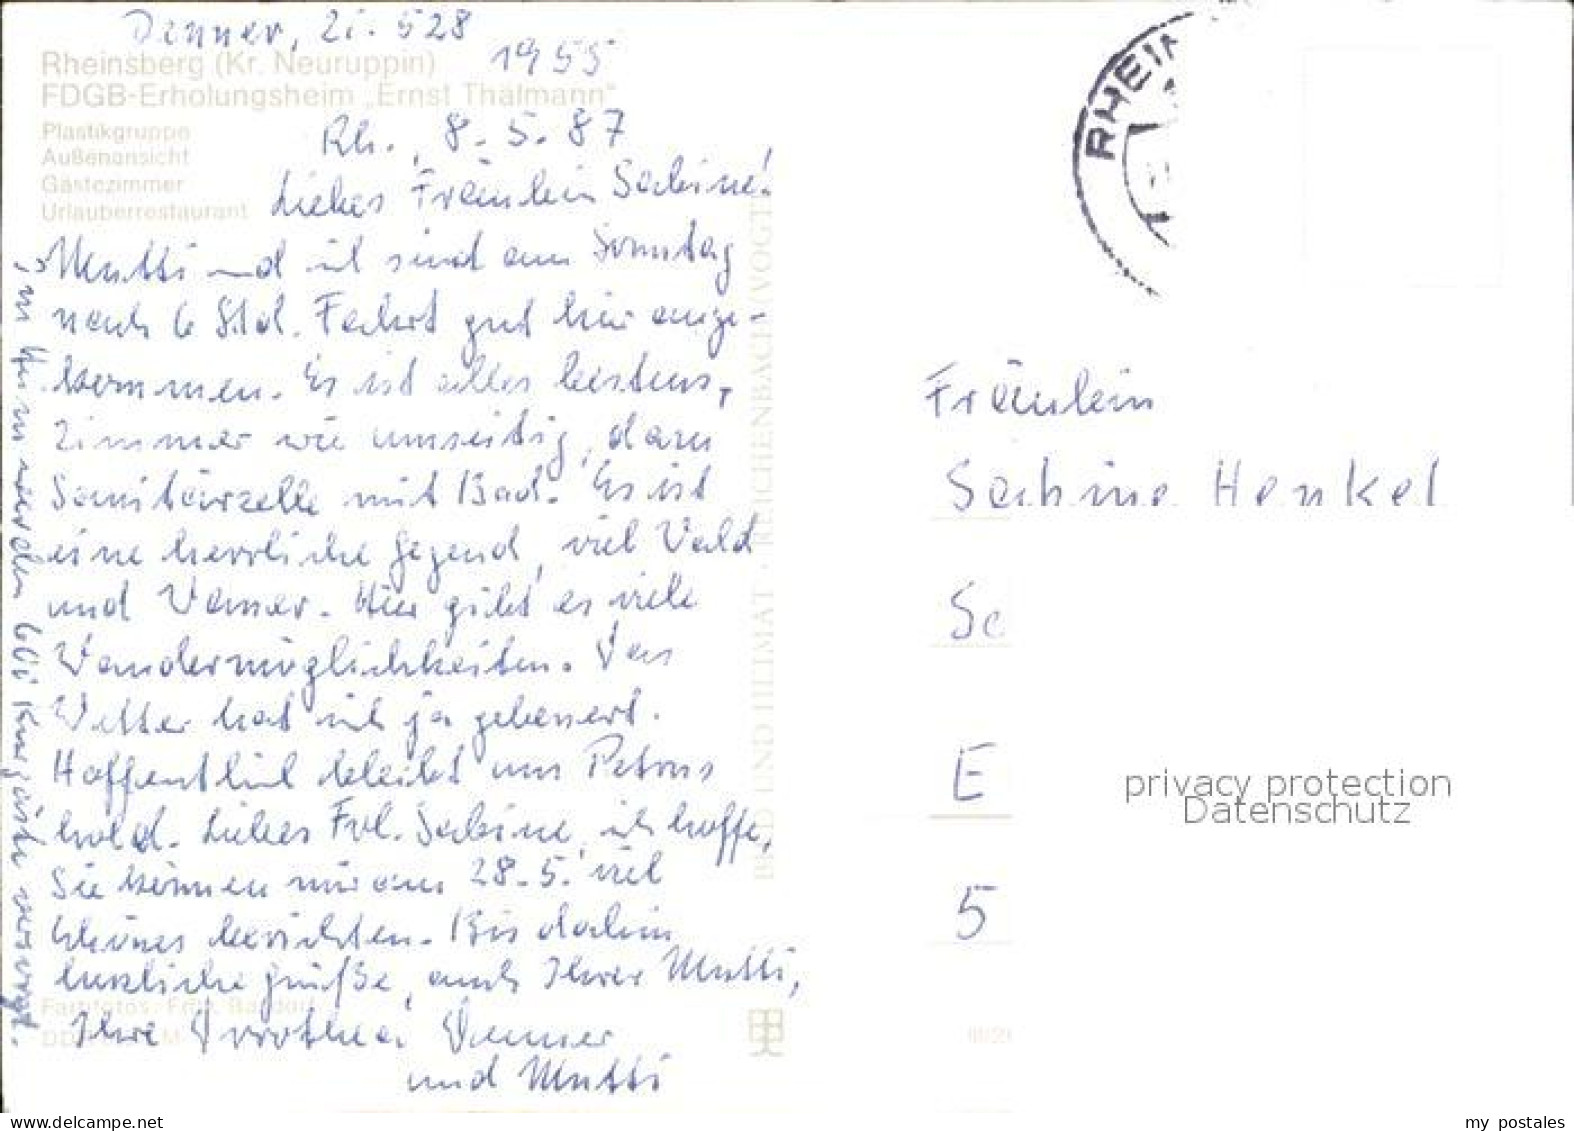 Danner, Zi. 528
1955
Rheinsberg (Kr. Neuruppin)
FDGB-Erholungsheim „Ernst Thälmann"
Plastikgruppe
Außenansicht
Gästezimmer
Urlauberrestaurant
Rh., 8.5.87
Liebes Fräulein Sabine!
Mutti und ich sind am Sonntag
nach 6 Std. Fahrt gut hier ange-
kommen. Es ist alles bestens,
Zimmer wie umseitig, dazu
Sanitärzelle mit Bad. Es ist
eine herrliche Gegend, viel Wald
und Wasser. Hier gibt es viele
Wandermöglichkeiten. Das
Wetter hat sich ja gebessert.
Hoffentlich bleibt uns Petrus
hold. Liebes Frl. Sabine, ich hoffe,
Sie können mir am 28.5. viel
Schönes berichten. Bis dahin
herzliche Grüße, auch Ihrer Mutti,
Ihre Dorothea Danner
und Mutti
Im Heim werden 600 Kurgäste versorgt.
BILD UND HEIMAT · REICHENBACH (VOGTL
RHEIN
Fräulein
Sabine Henkel
Sc
E
5
privacy protection
Datenschutz
my postales